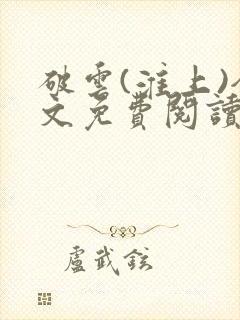 破雲(淮上)
文免費閱讀
盧武鉉